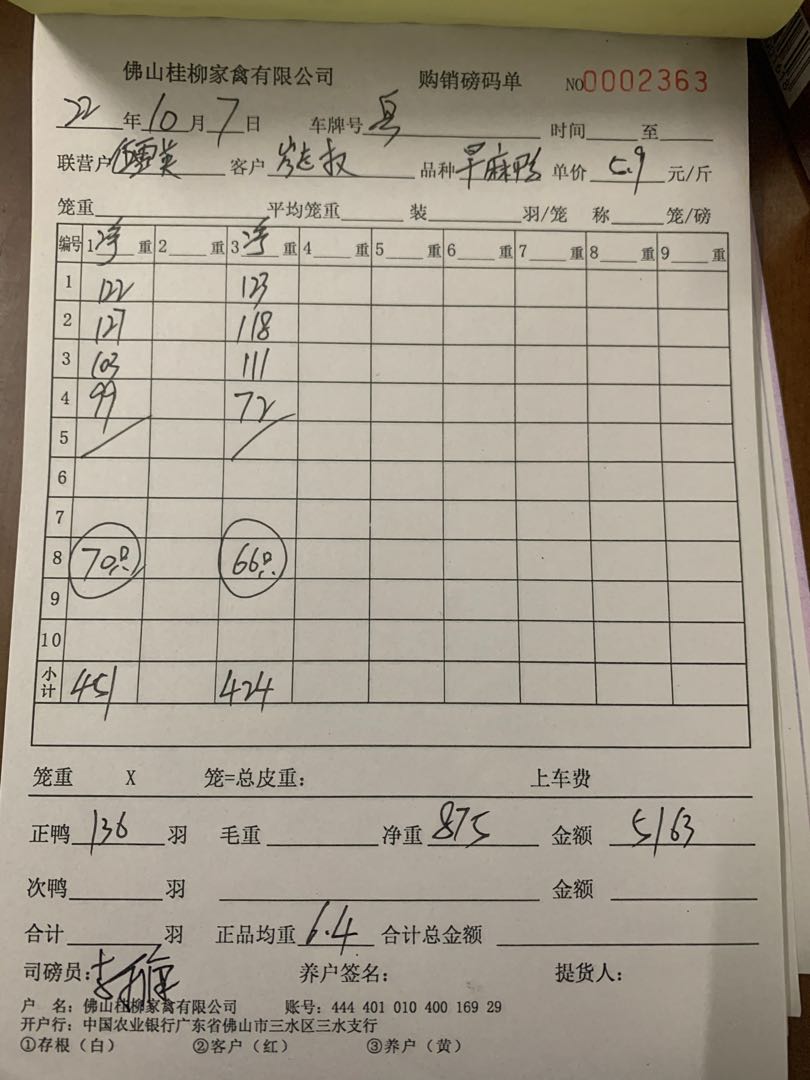 佛山桂柳家禽有限公司 购销磅码单 NO0002363
22年10月7日 车牌号 时间 至
联营户 英 客户 岑志权 品种 旱麻鸭 单价 5.9 元/斤
笼重 平均笼重 装 羽/笼 称 笼/磅
编号 1净重 2 重 3净重 4 重 5 重 6 重 7 重 8 重 9 重
1 122 123
2 127 118
3 103 111
4 99 72
5
6
7
8 70只 66只
9
10
小计 451 424
笼重 X 笼=总皮重: 上车费
正鸭 136 羽 毛重 净重 875 金额 5163
次鸭 羽 金额
合计 羽 正品均重 6.4 合计总金额
司磅员: 李 养户签名: 提货人:
户 名: 佛山桂柳家禽有限公司 账号: 444 401 010 400 169 29
开户行: 中国农业银行广东省佛山市三水区三水支行
①存根(白) ②客户(红) ③养户(黄)